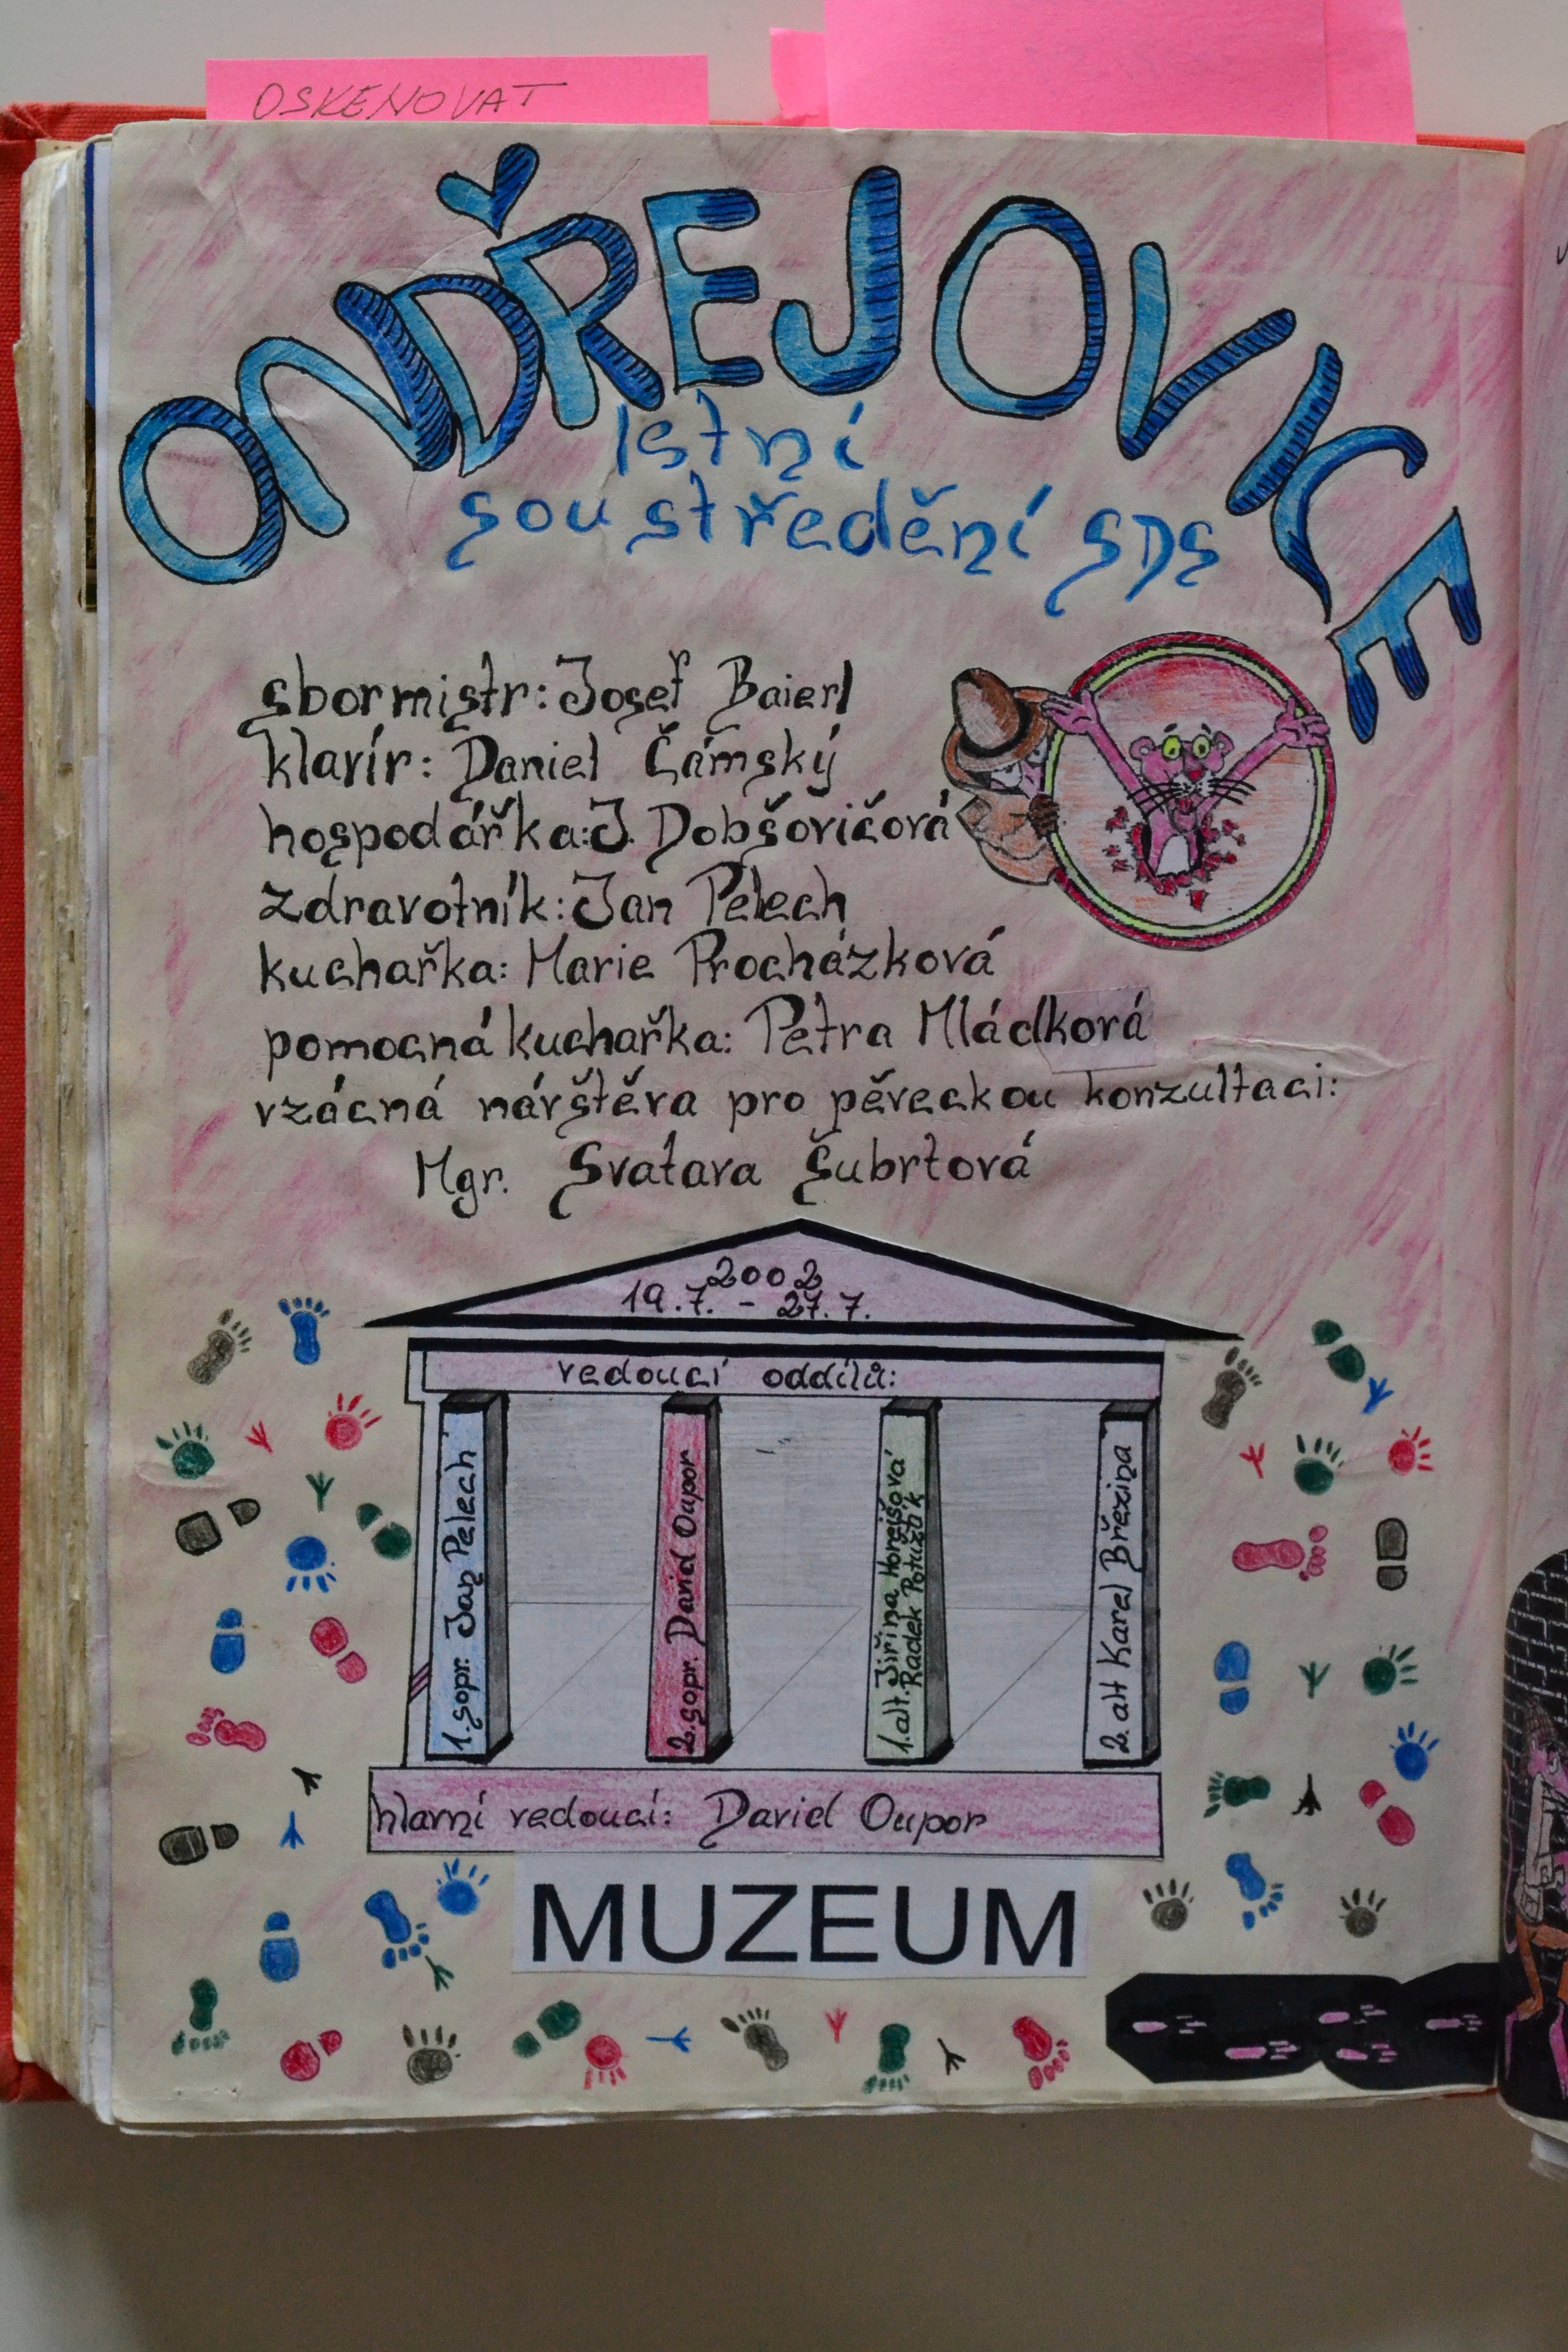 OSKENOVAT
ONDŘEJOVICE
letní
soustředění SDS
sbormistr: Josef Baierl
klavír: Daniel Čámský
hospodářka: J. Dobšovičová
zdravotník: Jan Pelech
kuchařka: Marie Procházková
pomocná kuchařka: Petra Mládková
vzácná návštěva pro pěveckou konzultaci:
Mgr. Svatava Šubrtová
2002
19.7. - 27.7.
vedoucí oddílů:
1. sopr. Jan Pelech
2. sopr. David Oupor
1. alt. Jiřina Horejšová
Radek Potužník
2. alt Karel Březina
hlavní vedoucí: David Oupor
MUZEUM